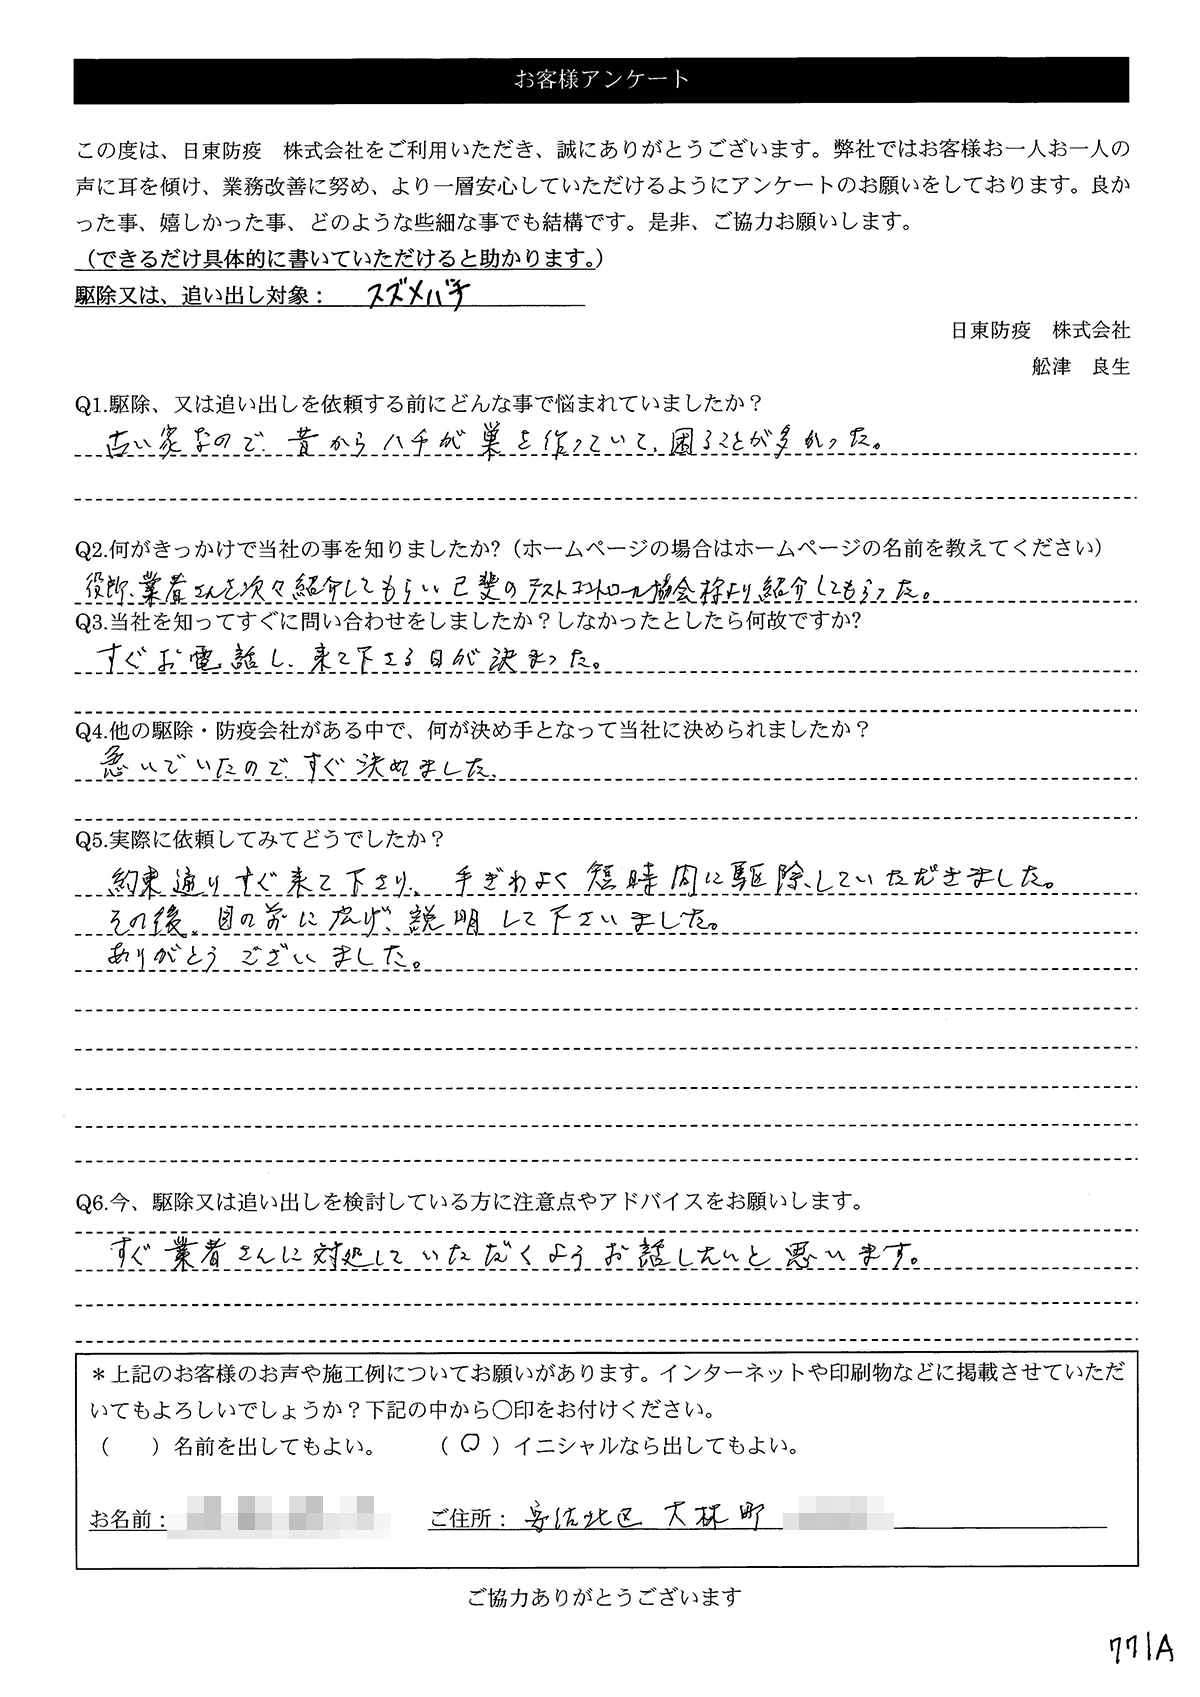 お客様アンケート
この度は、日東防疫　株式会社をご利用いただき、誠にありがとうございます。弊社ではお客様お一人お一人の
声に耳を傾け、業務改善に努め、より一層安心していただけるようにアンケートのお願いをしております。良か
った事、嬉しかった事、どのような些細な事でも結構です。是非、ご協力お願いします。
（できるだけ具体的に書いていただけると助かります。）
駆除又は、追い出し対象：　スズメバチ
日東防疫　株式会社
舩津　良生
Q1.駆除、又は追い出しを依頼する前にどんな事で悩まれていましたか？
古い家なので、昔からハチが巣を作っていて、困ることが多かった。
Q2.何がきっかけで当社の事を知りましたか?（ホームページの場合はホームページの名前を教えてください）
役所、業者さんを次々紹介してもらい己斐のテストコントロール協会様より紹介してもらった。
Q3.当社を知ってすぐに問い合わせをしましたか？しなかったとしたら何故ですか?
すぐお電話し、来て下さる日が決まった。
Q4.他の駆除・防疫会社がある中で、何が決め手となって当社に決められましたか？
急いでいたので、すぐ決めました。
Q5.実際に依頼してみてどうでしたか？
約束通りすぐ来て下さり、手ぎわよく短時間に駆除していただきました。
その後、目の前に広げ、説明して下さいました。
ありがとうございました。
Q6.今、駆除又は追い出しを検討している方に注意点やアドバイスをお願いします。
すぐ業者さんに対処していただくようお話したいと思います。
＊上記のお客様のお声や施工例についてお願いがあります。インターネットや印刷物などに掲載させていただ
いてもよろしいでしょうか？下記の中から○印をお付けください。
（　　）名前を出してもよい。　　（○）イニシャルなら出してもよい。
お名前：　ご住所：安佐北区　大林町
ご協力ありがとうございます
771A